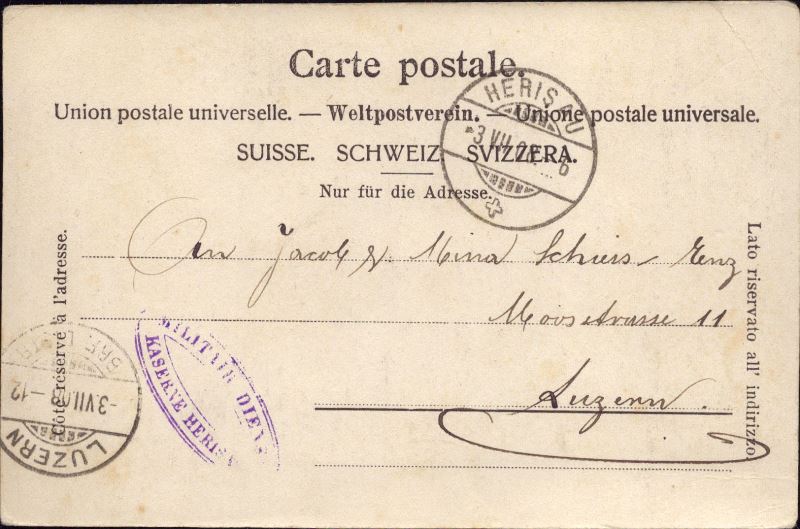 Carte postale.
Union postale universelle. — Weltpostverein. — Unione postale universale.
SUISSE. SCHWEIZ. SVIZZERA.
Nur für die Adresse.
HERISAU
3 VII
6
An Jacob & Mina Schiess-Enz
Moosstrasse 11
Luzern.
Côté réservé à l'adresse.
Lato riservato all' indirizzo.
MILITAIR DIENS
KASERNE HERIS
-3 VII.03-12
LUZERN